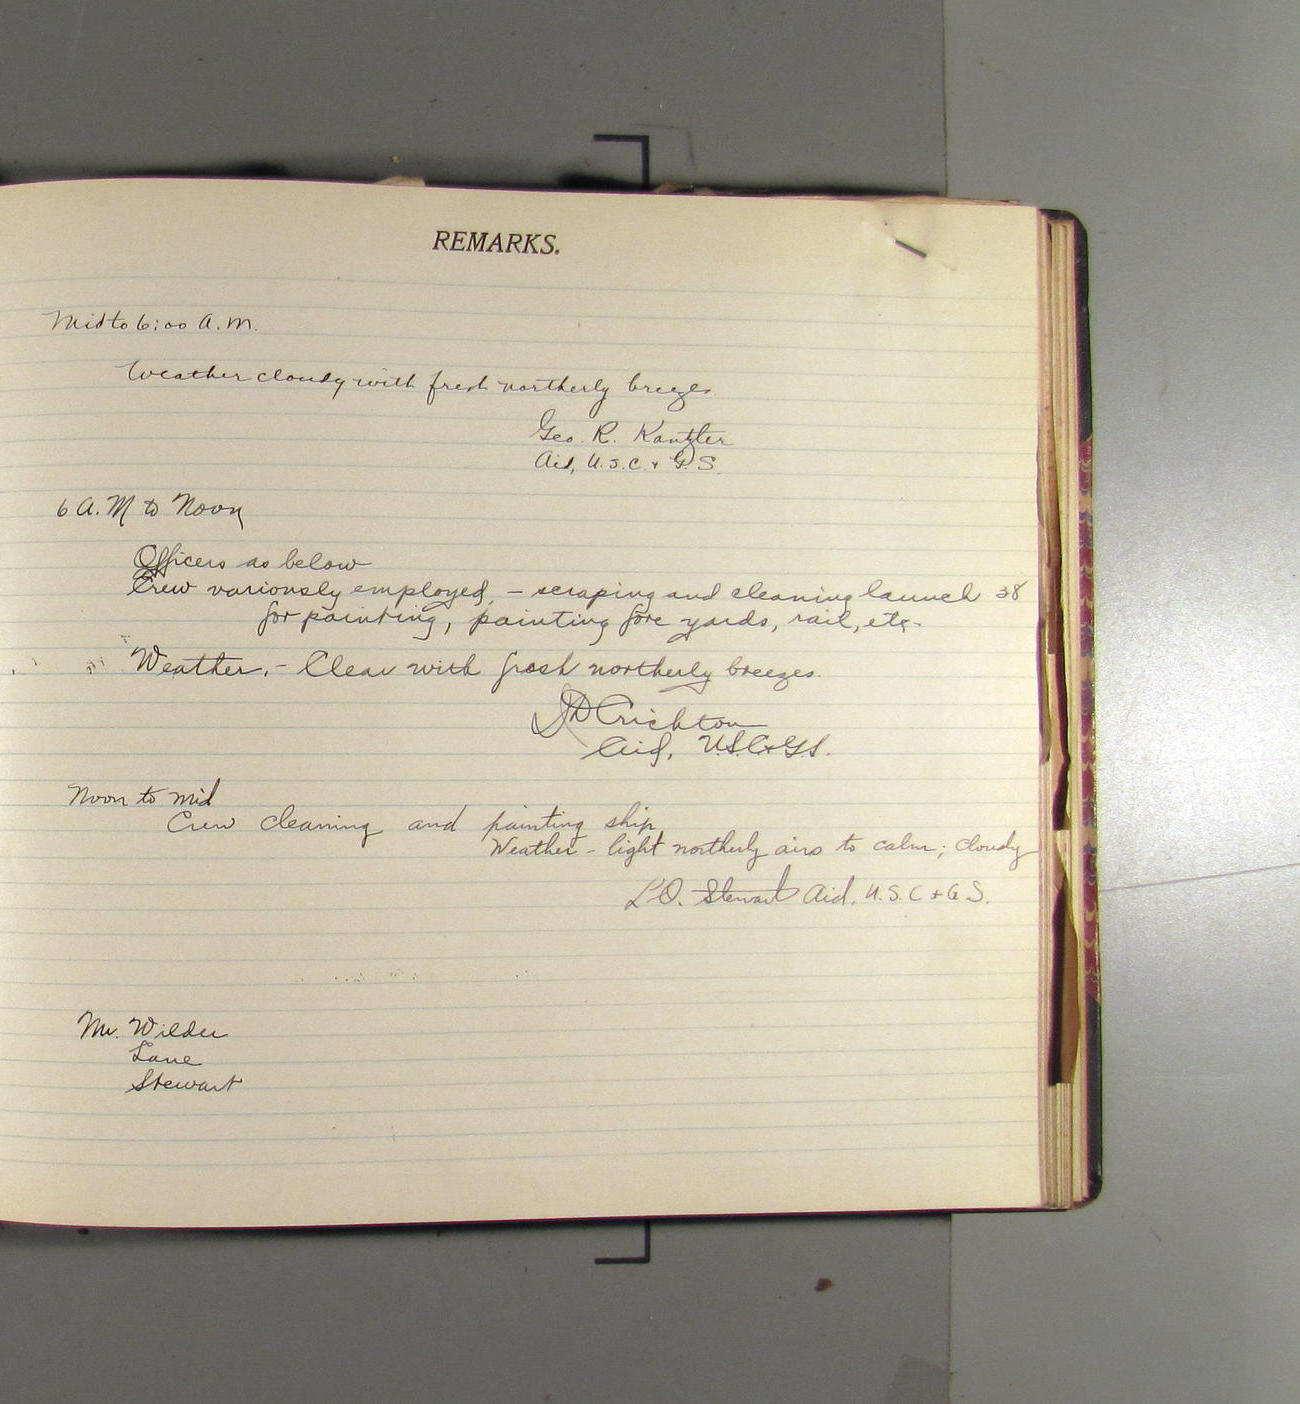 REMARKS.
Mid to 6:00 A.M.
Weather cloudy with fresh northerly breezes.
Geo. R. Kantzler
Aid, U.S.C. & G.S.
6 A.M to Noon
Officers as below
Crew variously employed, - scraping and cleaning launch 38
for painting, painting fore yards, rail, etc.
Weather, - Clear with fresh northerly breezes.
JD Crichton
Aid, U.S.C.&G.S.
Noon to Mid
Crew cleaning and painting ship
Weather - light northerly airs to calm; cloudy
L.O. Stewart Aid, U.S.C & G.S.
Mr. Wilder
Lane
Stewart